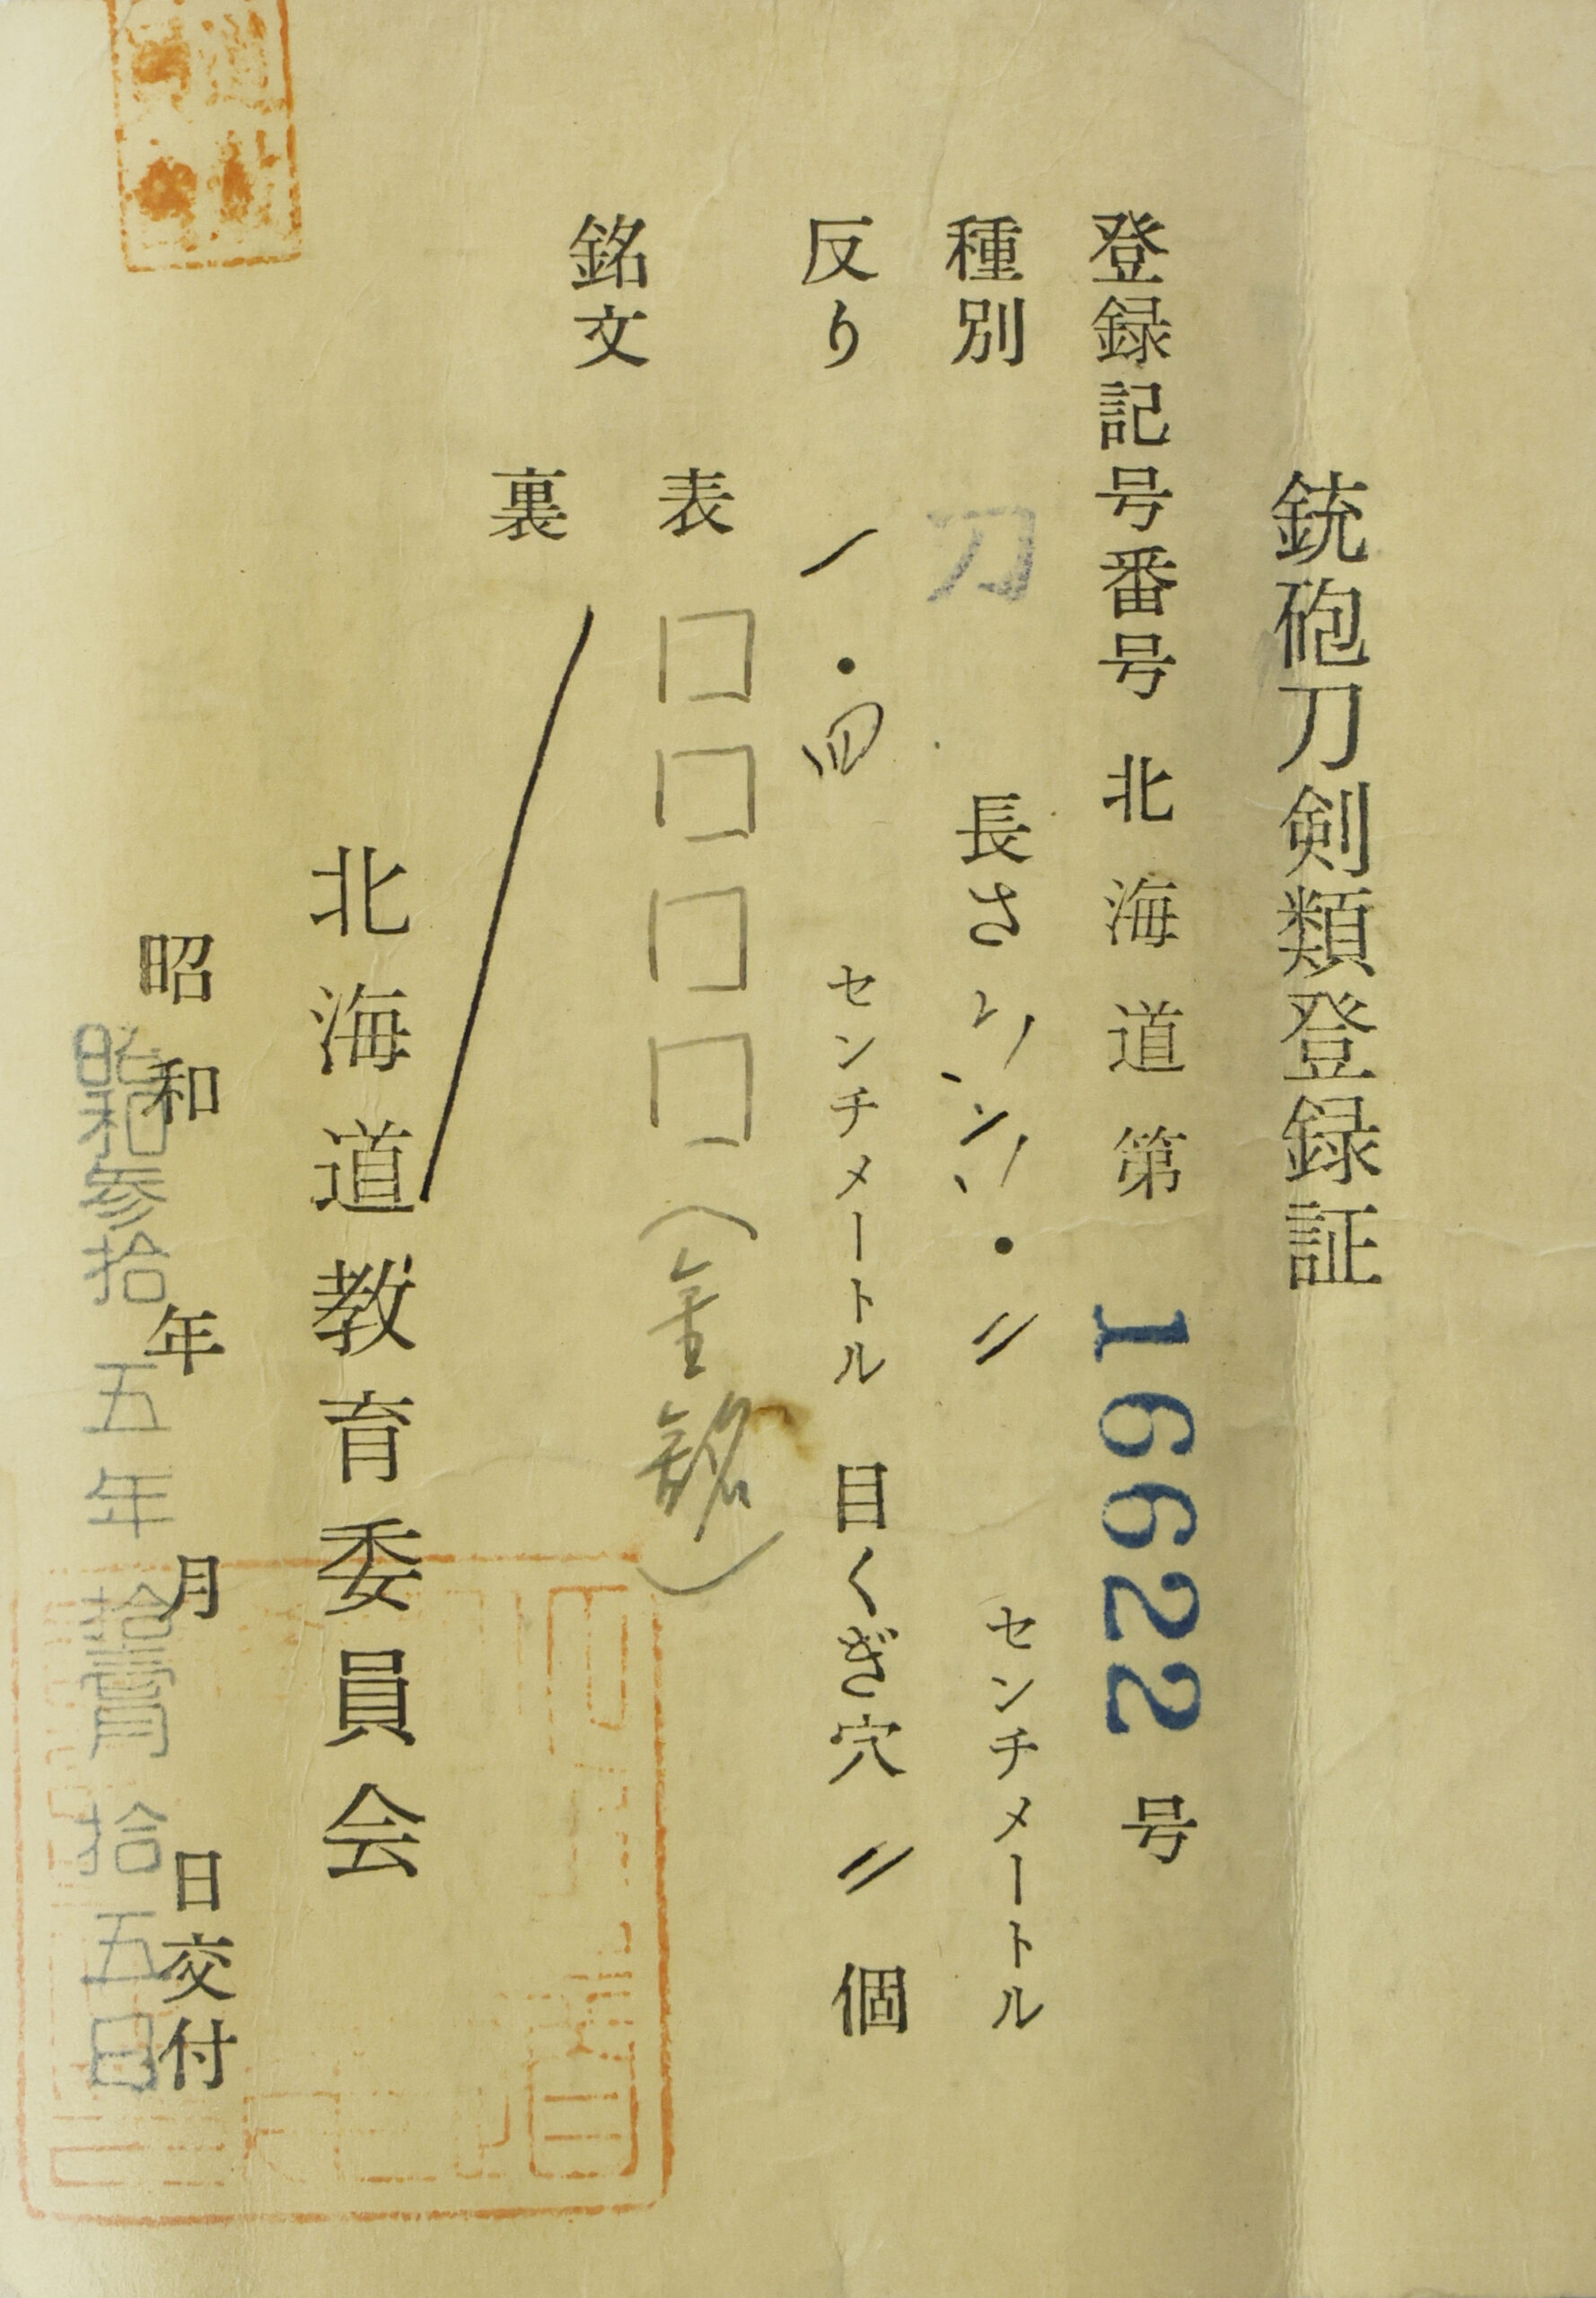 銃砲刀剣類登録証
登録記号番号 北海道第 16622 号
種別 刀 長さ ・二 センチメートル
反り 一・四 センチメートル 目くぎ穴 二 個
銘文
表 □□□□（金銘）
裏
北海道教育委員会
昭和 年 月 日交付
昭和参拾五年拾壹月拾五日